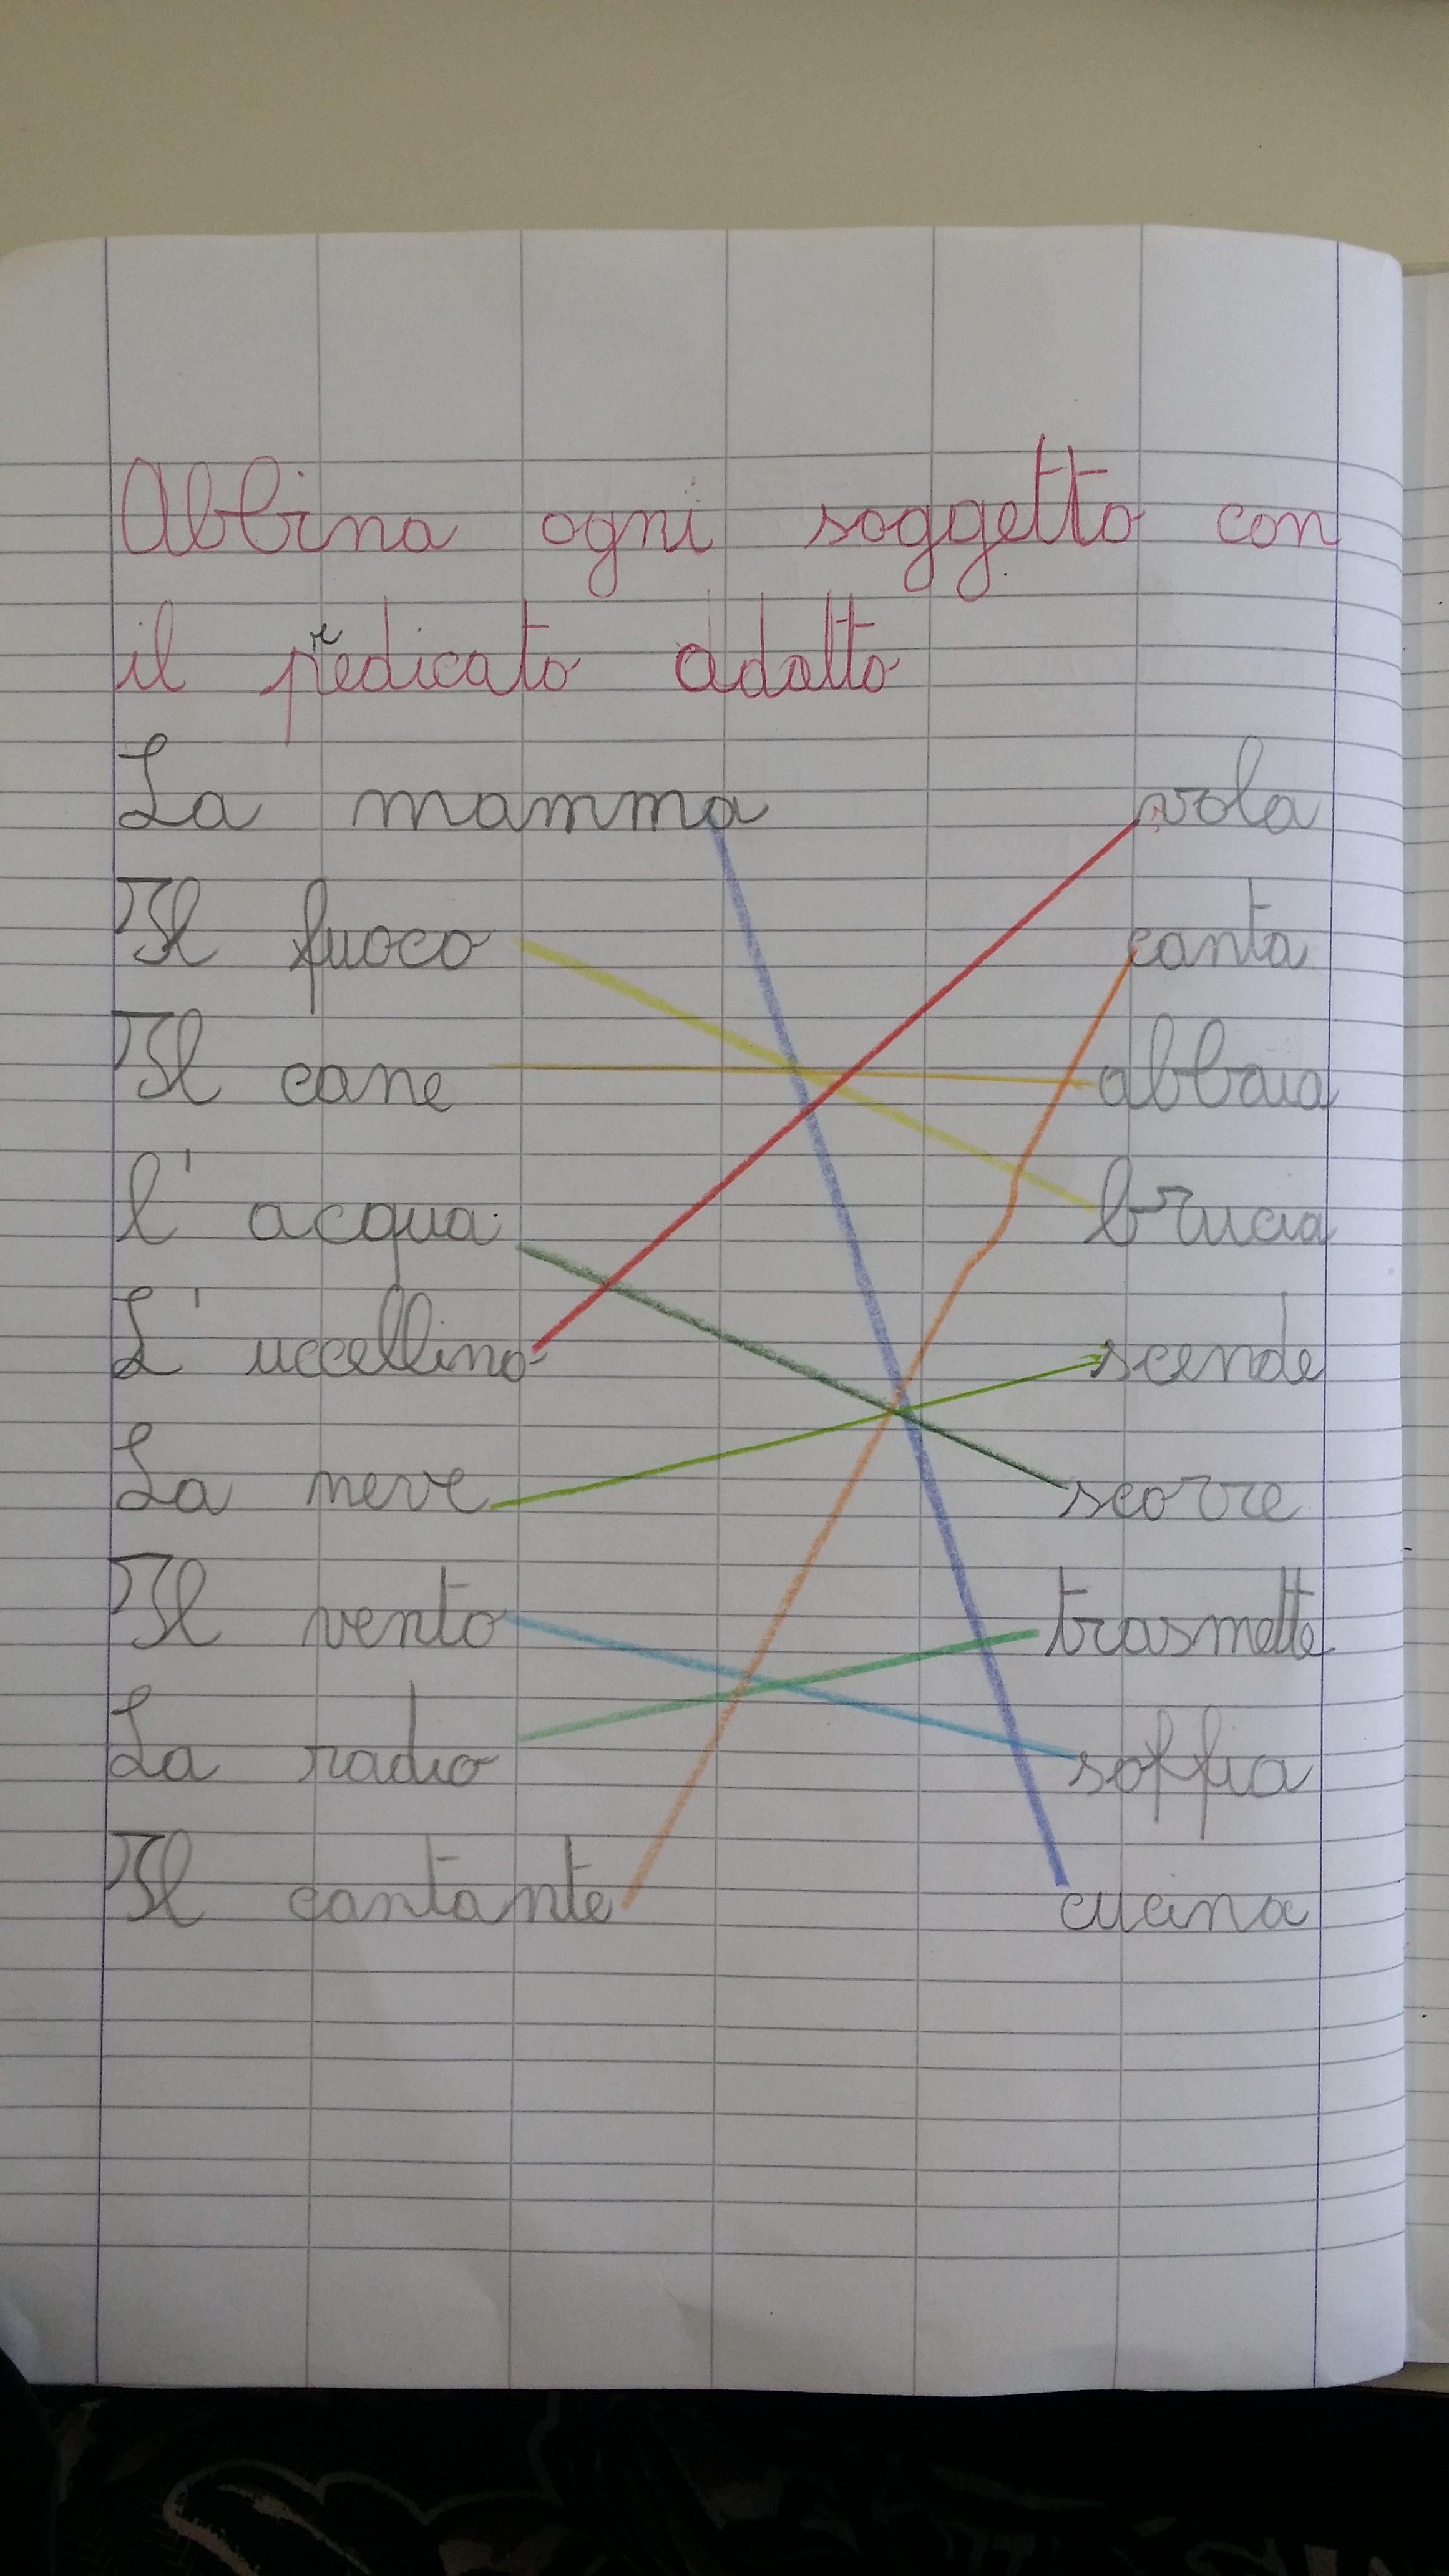 Abbina ogni soggetto con
il predicato adatto
La mamma vola
Il fuoco canta
Il cane abbaia
l' acqua brucia
L' uccellino scende
La neve scorre
Il vento trasmette
La radio soffia
Il cantante cucina